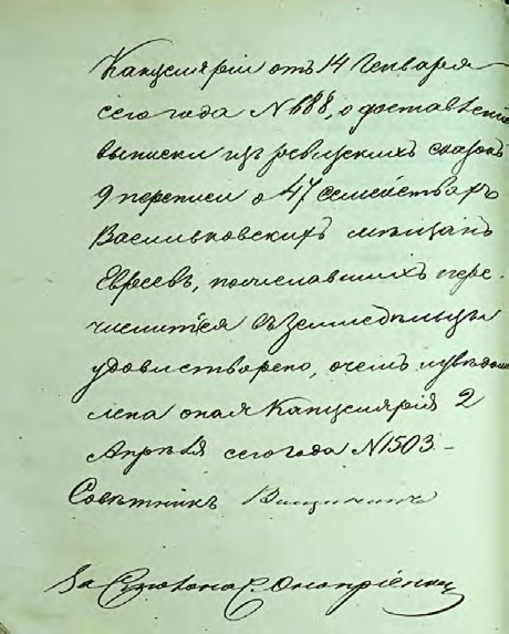 Канцеляріи отъ 14 Генваря
сего года N 688, о доставленіи
выписки изъ ревизскихъ сказокъ
9 переписи о 47 семействахъ
Васильковскихъ мѣщанъ
Евреевъ, пожелавшихъ пере-
числится въ Земледѣльцы
удовлетворено, о чемъ увѣдом
лена оная Канцелярія 2
Апрѣля сего года N 1503. –
Совѣтникъ
За Столона С. Оноприенко